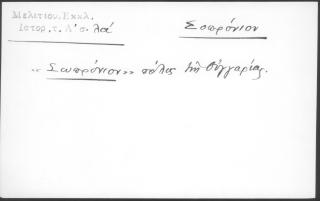 Μελιτίου, Ἐκκλ.
Ἱστορ. τ. Α´ σ. λα´
Σοπρόνιον
«Σωπρόνιον» πόλις τῆς Οὐγγαρίας.